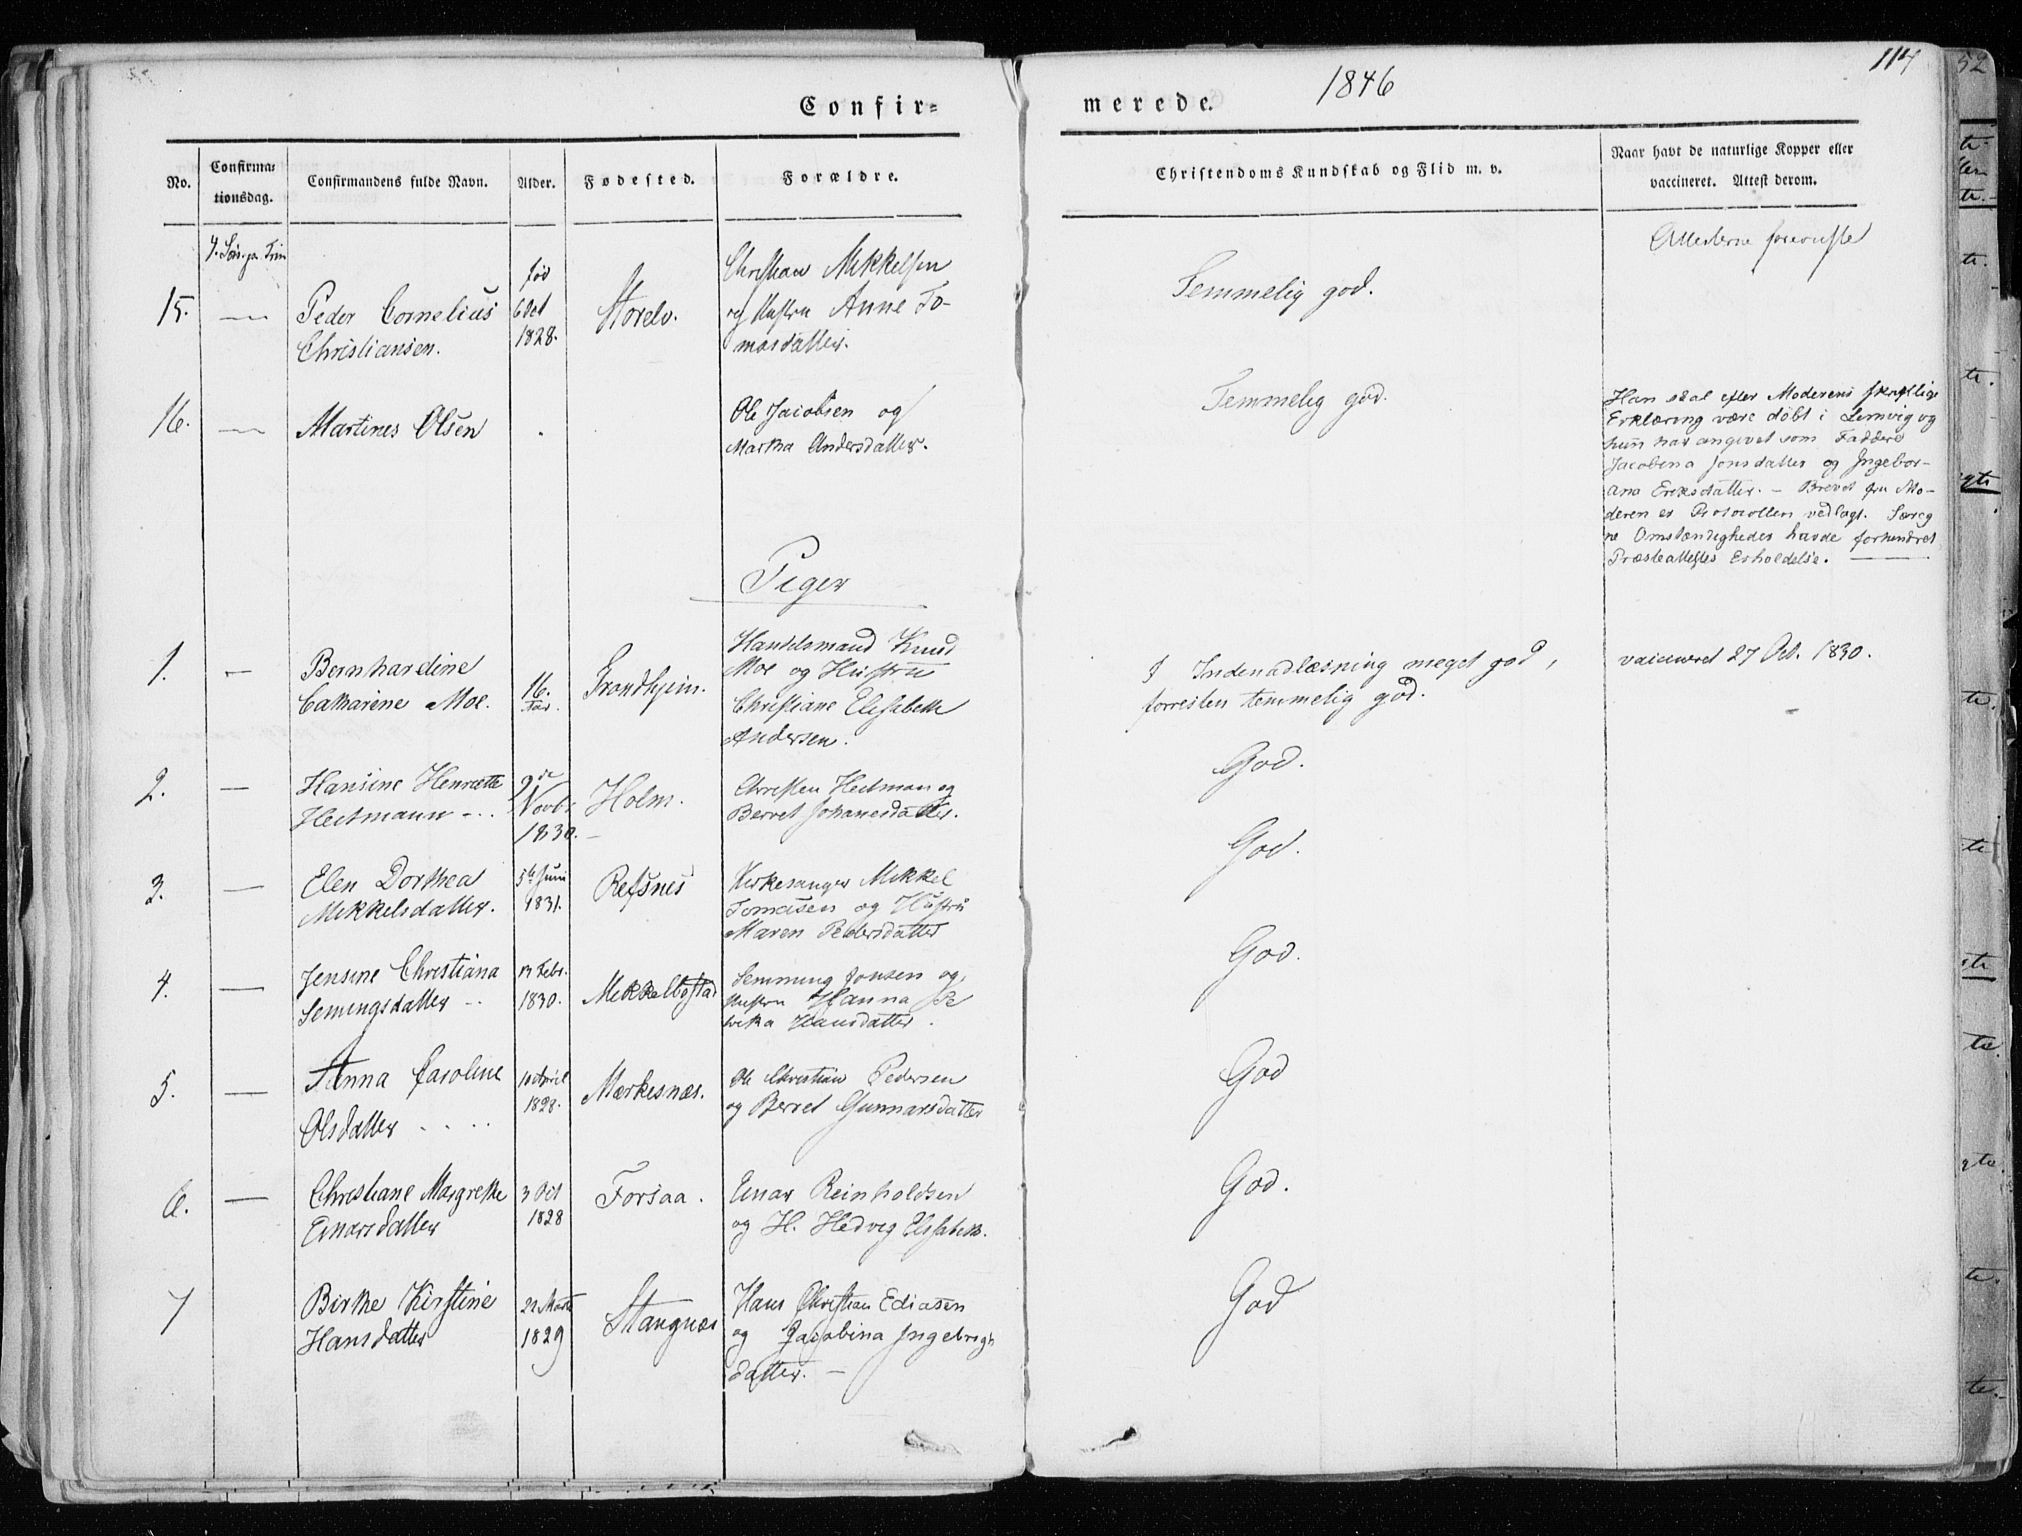 Confir=
merede.
1846
114
52
No.
Confirma=
tionsdag.
Confirmandens fulde Navn.
Alder.
Fødested.
Forældre.
Christendoms Kundskab og Flid m. v.
Naar havt de naturlige Kopper eller
vaccineret. Attest derom.
Attesterne foreviste
15.
Peder Cornelius
Christiansen.
fød
6 Oct
1828.
Storelv.
Christian Mikkelsen
og Hustru Anne To-
masdatter.
Temmelig god.
16.
Martines Olsen
Ole Jacobsen og
Martha Andersdatter.
Temmelig god.
Han skal efter Moderens skriftlige
Erklæring være døbt i Lemvig og
hun har angivet som Faddere
Jacobina Jonsdatter og Ingebor-
ana Eriksdatter. – Brevet fra Mo-
deren er Protocollen vedlagt. Særeg
ne Omstændigheder havde forhindret
Præsteattestes Erholdelse.
Piger
1.
Bernhardine
Catharine Moe.
16.
Aar.
Trondhjem.
Handelsmand Knud
Moe og Hustru
Christiane Elisabeth
Andersen.
I Indenadlæsning meget god,
forresten temmelig god.
vaccineret 27 Oct. 1830.
2.
Hansine Henriette
Heitmann
9de
Novbr
1830.
Holm.
Christen Heitman og
Berret Johanesdatter.
God.
3.
Elen Dorthea
Mikkelsdatter.
5te Juni
1831.
Refsnes
Kirkesanger Mikkel
Tomasen og Hustru
Maren Pedersdatter
God.
4.
Jensine Christiana
Semingsdatter
13 Febr.
1830.
Mikkelbostad
Semming Jonsen og
Hustru Hanna Re
beka Hansdatter.
God.
5.
Anna Caroline
Olsdatter
10 April
1828.
Mærkesnæs.
Ole Christian Pedersen
og Berret Gunnarsdatter
God
6.
Christiane Margrethe
Einarsdatter
3 Oct
1828
Forsaa.
Einar Reinholdsen
og H. Hedvig Elisabeth.
God.
7
Birthe Kirstine
Hansdatter
22 Marts
1829
Stangnæs
Hans Christian Ediasen
og Jacobina Ingebrigts
datter. —
God